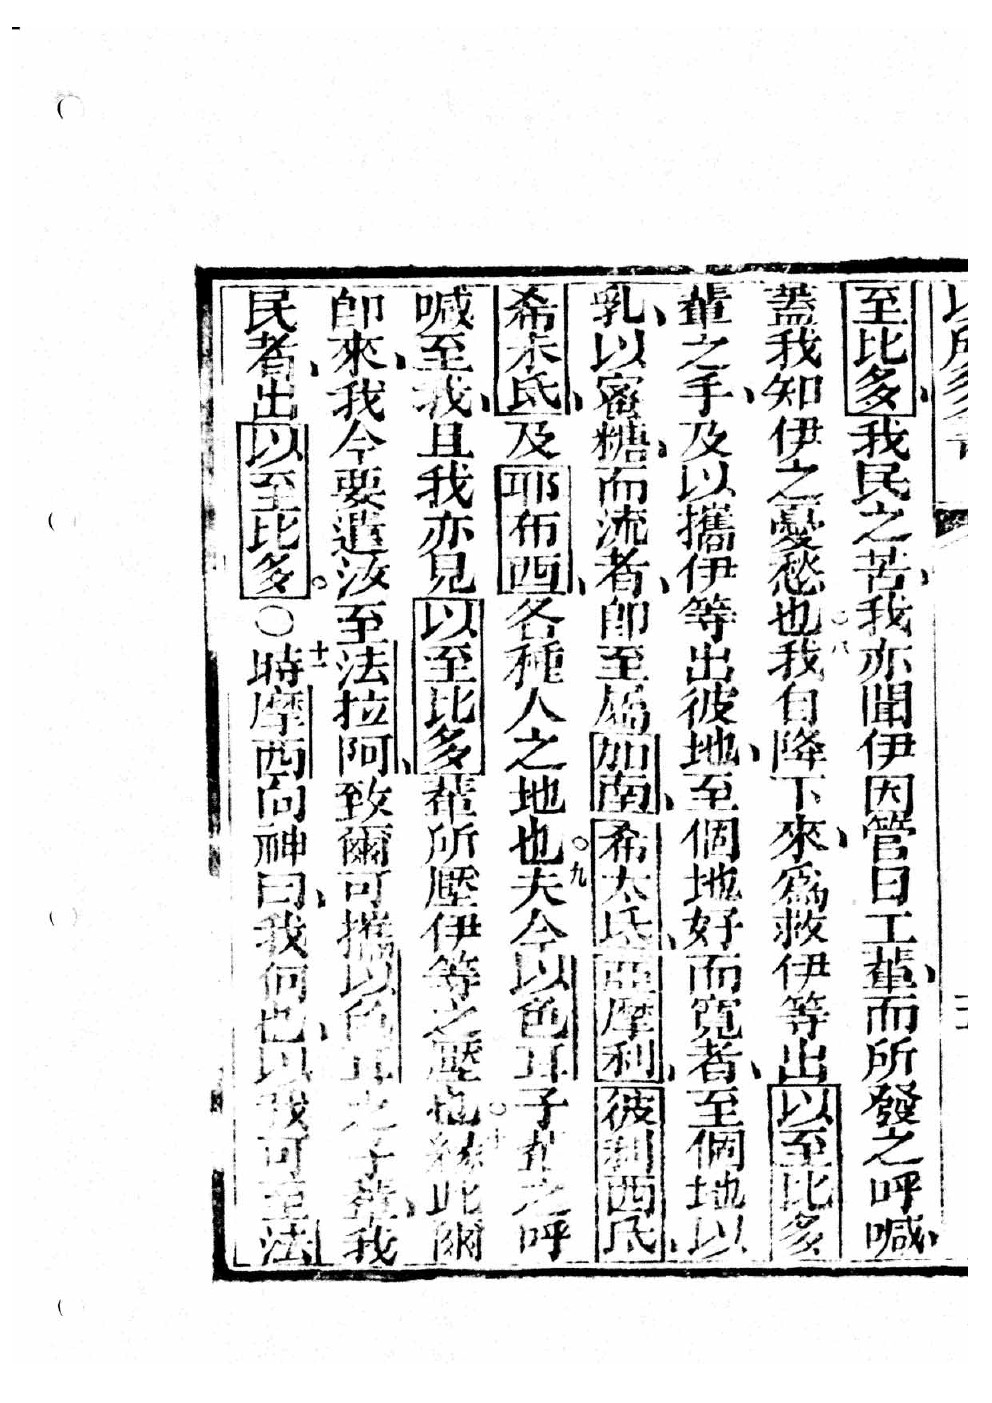 至比多、我民之苦、我亦聞伊因管日工輩、而所發之呼喊、
蓋我知伊之憂愁也○八我自降下來、爲救伊等出以至比多
輩之手、及以攜伊等出彼地、至個地好而寬者、至個地以
乳、以密糖、而流者、卽至屬加南、希太氐、亞摩利、彼利西氐、
希未氐、及耶布西、各種人之地也○九夫今以色耳子輩之呼
喊至我、且我亦見以至比多輩所壓伊等之壓也○十緣此爾
卽來、我今要遣汝至法拉阿、致爾可攜以色耳之子輩、我
民者、出以至比多。○十一時摩西向神曰、我何也、以我可至法